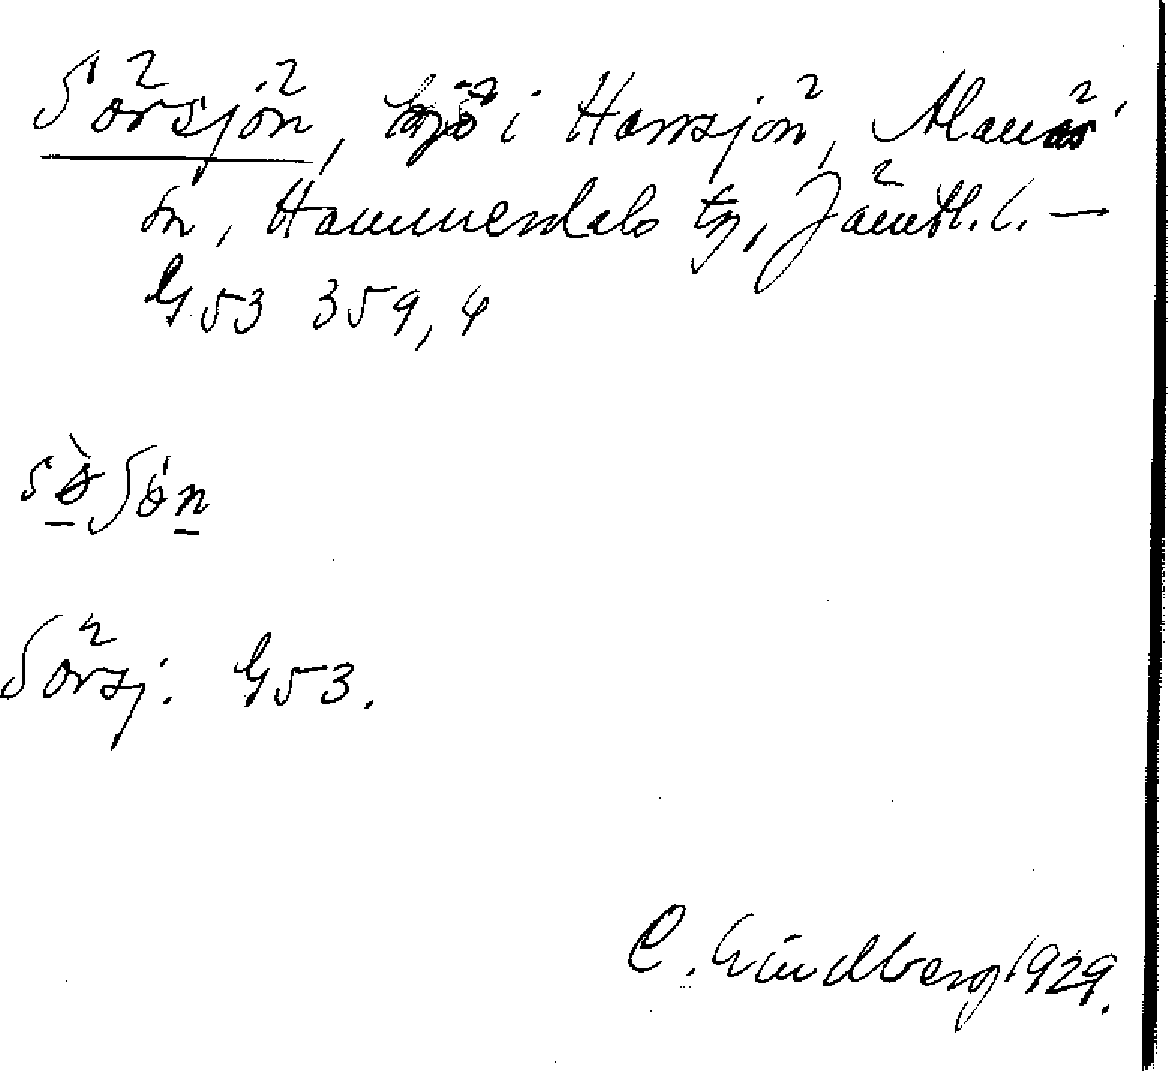 Sörsjön, i Harrsjön, Alanäs
sn, Hammerdals tg, Jämtl. l. —
G53 359,4
Sörsj. G53.
C. Lindberg 1929.